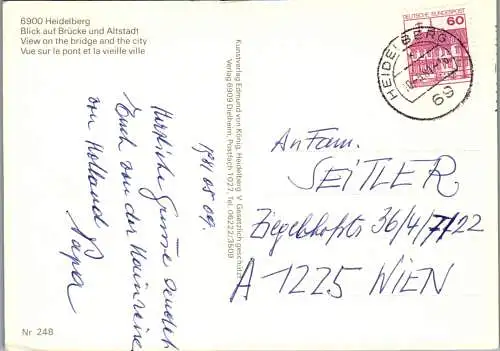 6900 Heidelberg
Blick auf Brücke und Altstadt
View on the bridge and the city
Vue sur le pont et la vieille ville
DEUTSCHE BUNDESPOST
60
HEIDELBERG
69
Kunstverlag Edmund von König, Heidelberg V. Gesetzlich geschützt
Verlag 6909 Dielheim, Postfach 1027, Tel. 06222/3509
1981 05 09.
Herzliche Grüsse sendet
Euch von der Heimreise
von Holland
Papa
An Fam.
SEITLER
Ziegelhofstr 36/4/7/22
A 1225 WIEN
Nr 248